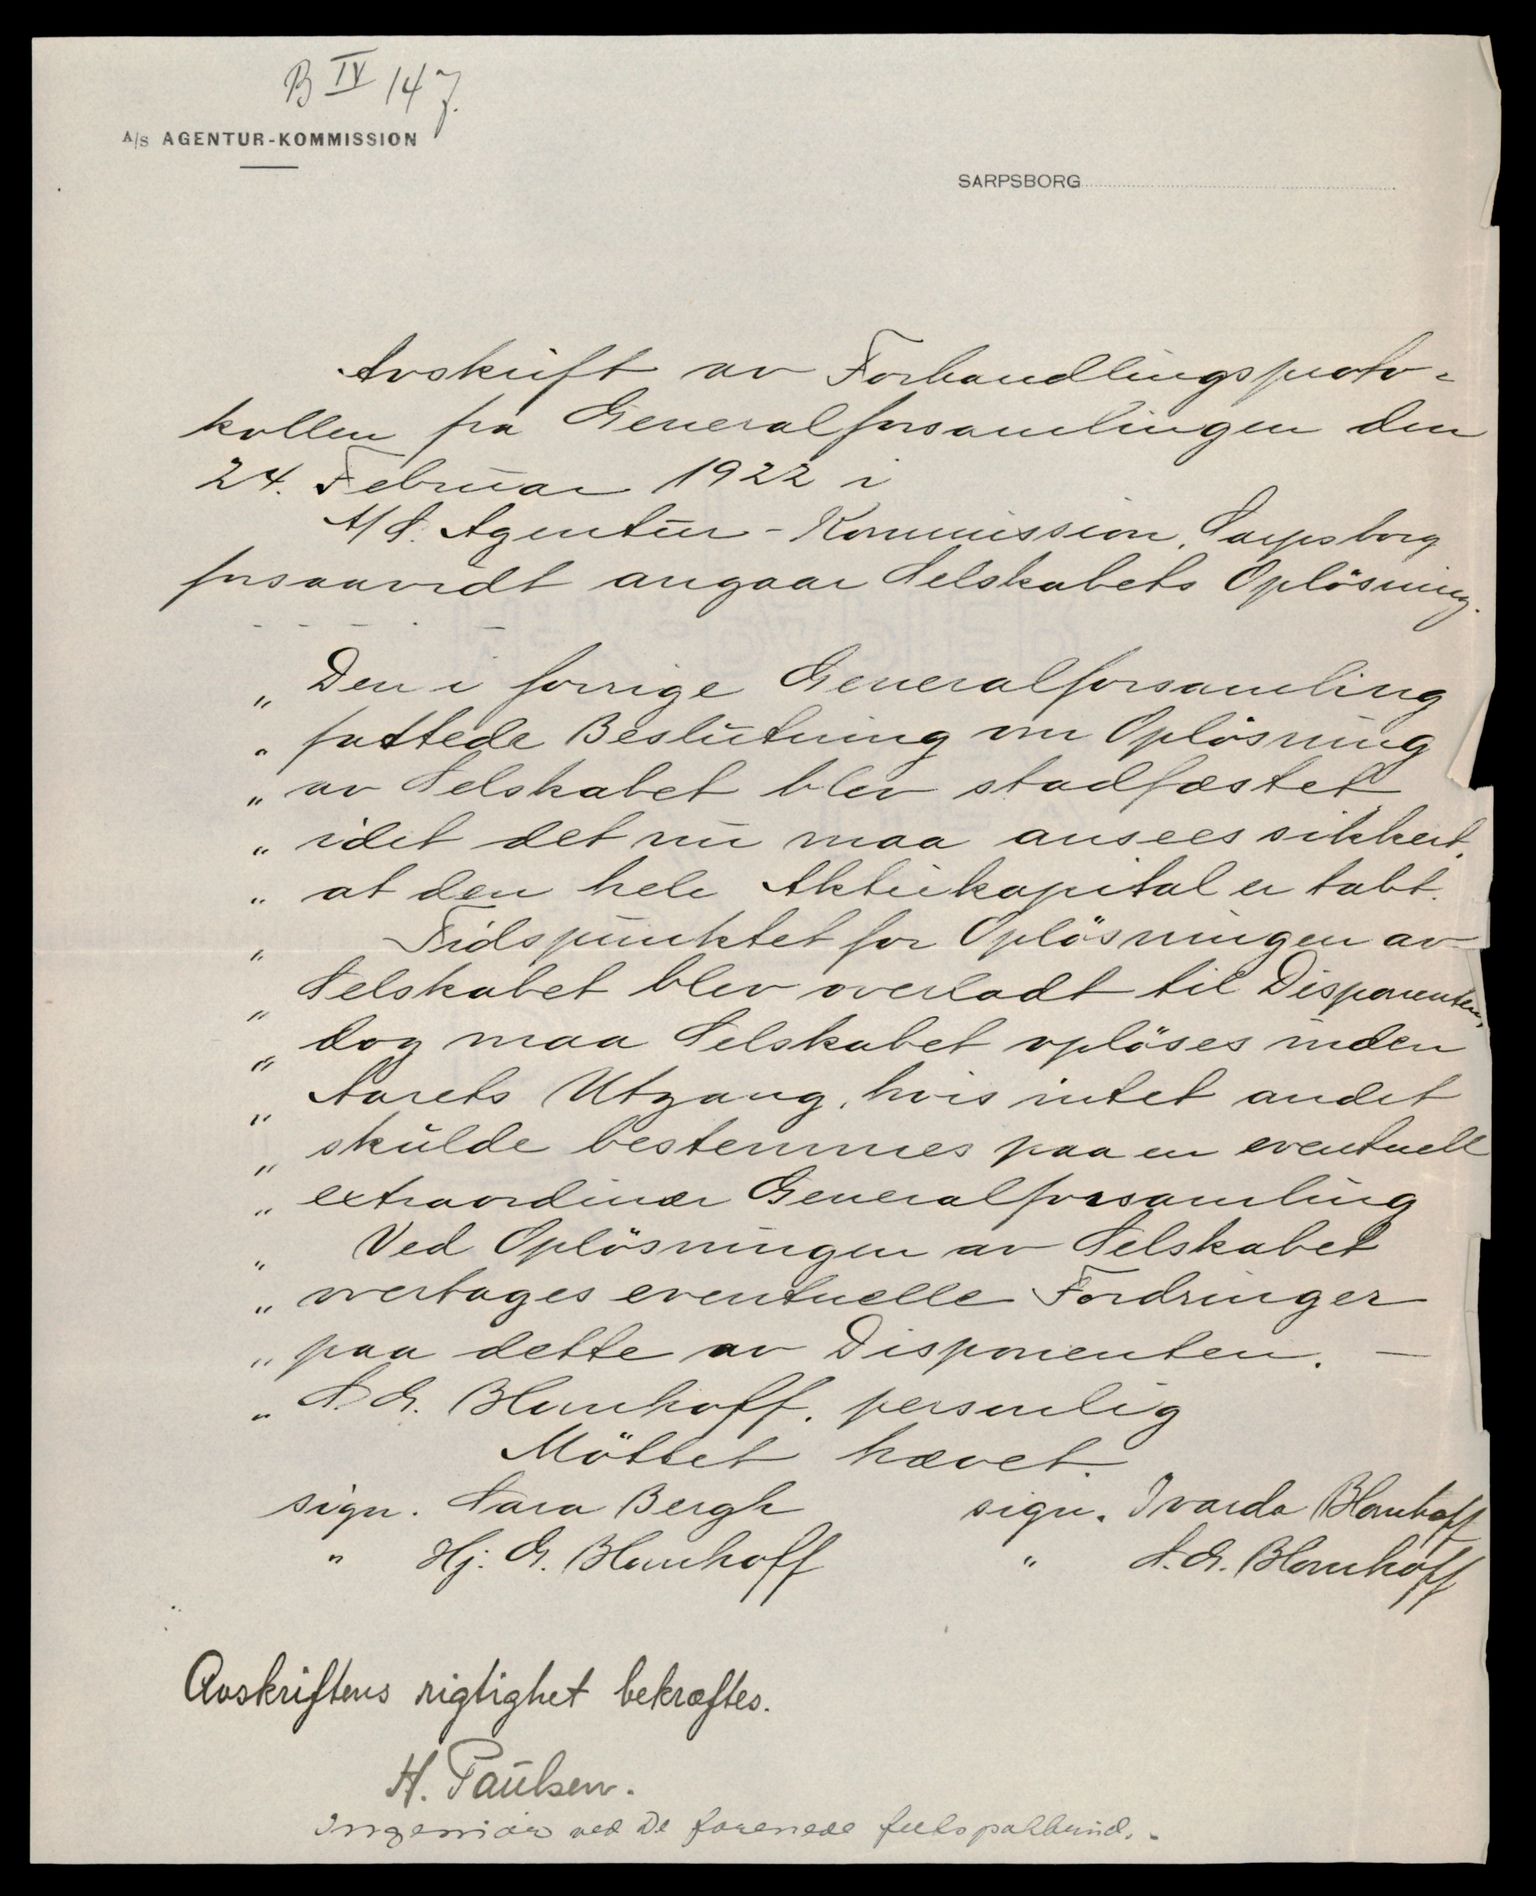 B IV 147.
A/S AGENTUR-KOMMISSION
SARPSBORG
Avskrift av Forhandlingsproto-
kollen fra Generalforsamlingen den
24. Februar 1922 i
A/S. Agentur-Kommission, Sarpsborg
forsaavidt angaar Selskabets Opløsning.
" Den i forrige Generalforsamling
" fattede Beslutning om Opløsning
" av Selskabet blev stadfæstet
" idet det nu maa ansees sikkert,
" at den hele Aktiekapital er tabt.
" Tidspunktet for Opløsningen av
" Selskabet blev overladt til Disponenten,
" dog maa Selskabet opløses inden
" Aarets Utgang, hvis intet andet
" skulde bestemmes paa en eventuell
" extraordinær Generalforsamling
" Ved Opløsningen av Selskabet
" overtages eventuelle Fordringer
" paa dette av Disponenten. —
" S. G. Blomhoff, personlig
Møttet hævet.
sign. Sara Bergh sign. Ivarda Blomhoff
" Hj. G. Blomhoff " S. G. Blomhoff
Avskriftens rigtighet bekræftes.
H. Paulsen.
Ingeniør ved De forenede